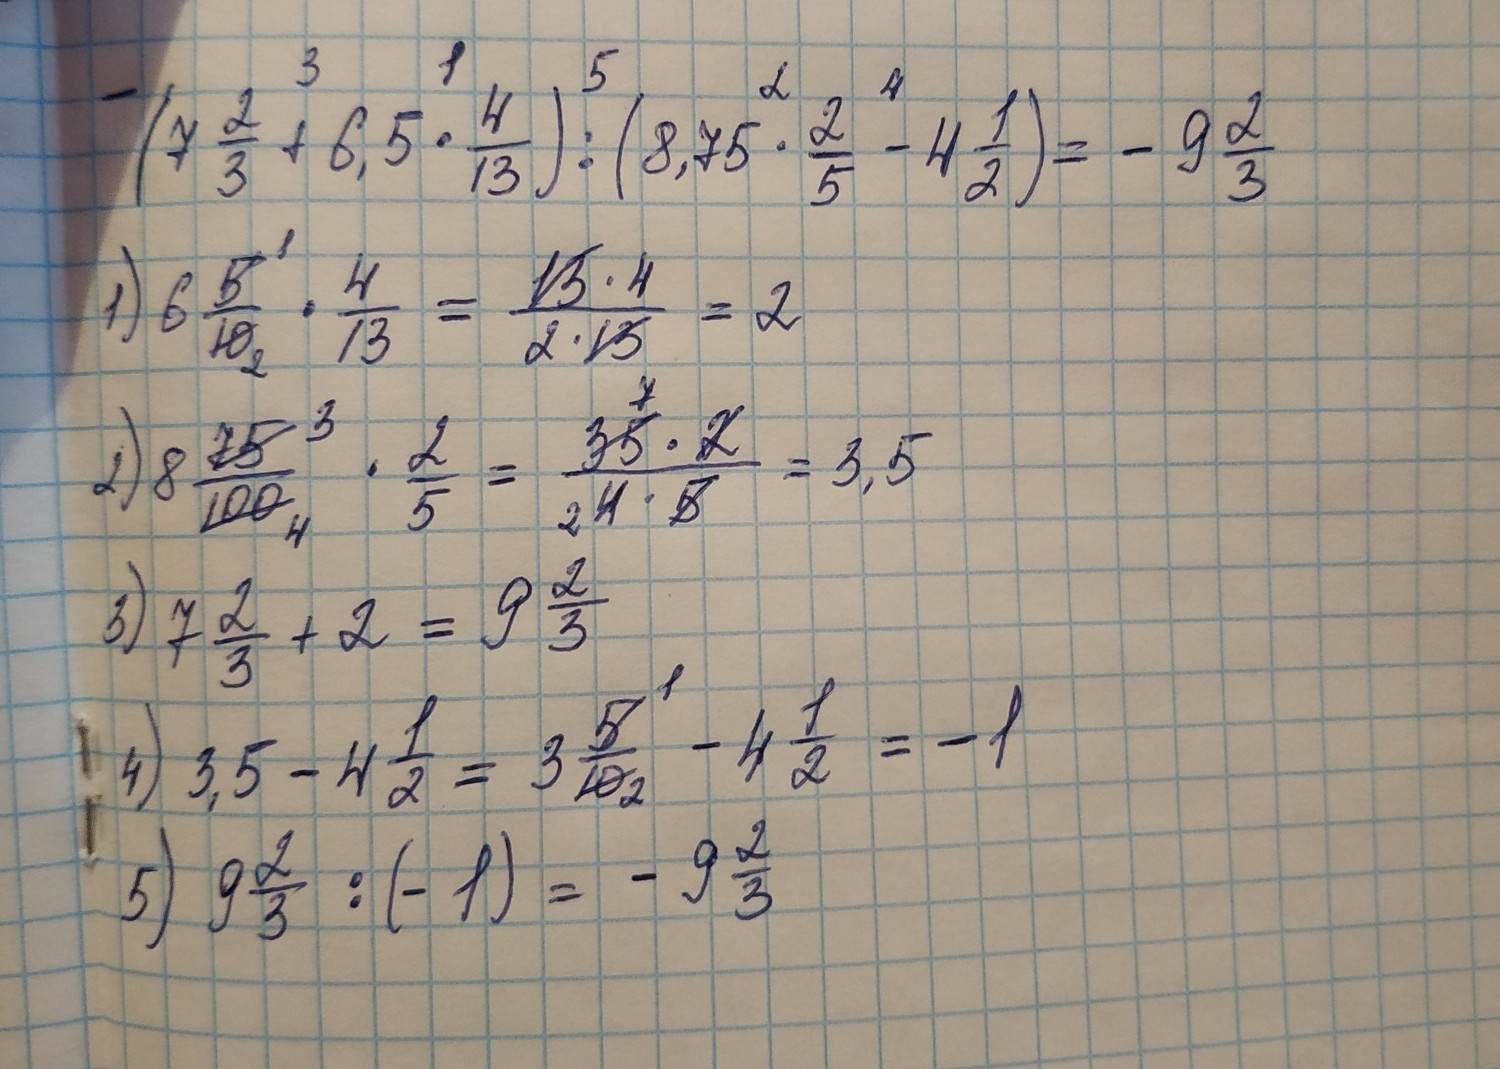 -(7 2/3 +³ 6,5 ·¹ 4/13) :⁵ (8,75 ·² 2/5 -⁴ 4 1/2) = - 9 2/3
1) 6 5¹/10₂ · 4/13 = 13·4/2·13 = 2
2) 8 75³/100₄ · 2/5 = 35⁷·2/₂4·5 = 3,5
3) 7 2/3 + 2 = 9 2/3
4) 3,5 - 4 1/2 = 3 5¹/10₂ - 4 1/2 = -1
5) 9 2/3 : (-1) = - 9 2/3